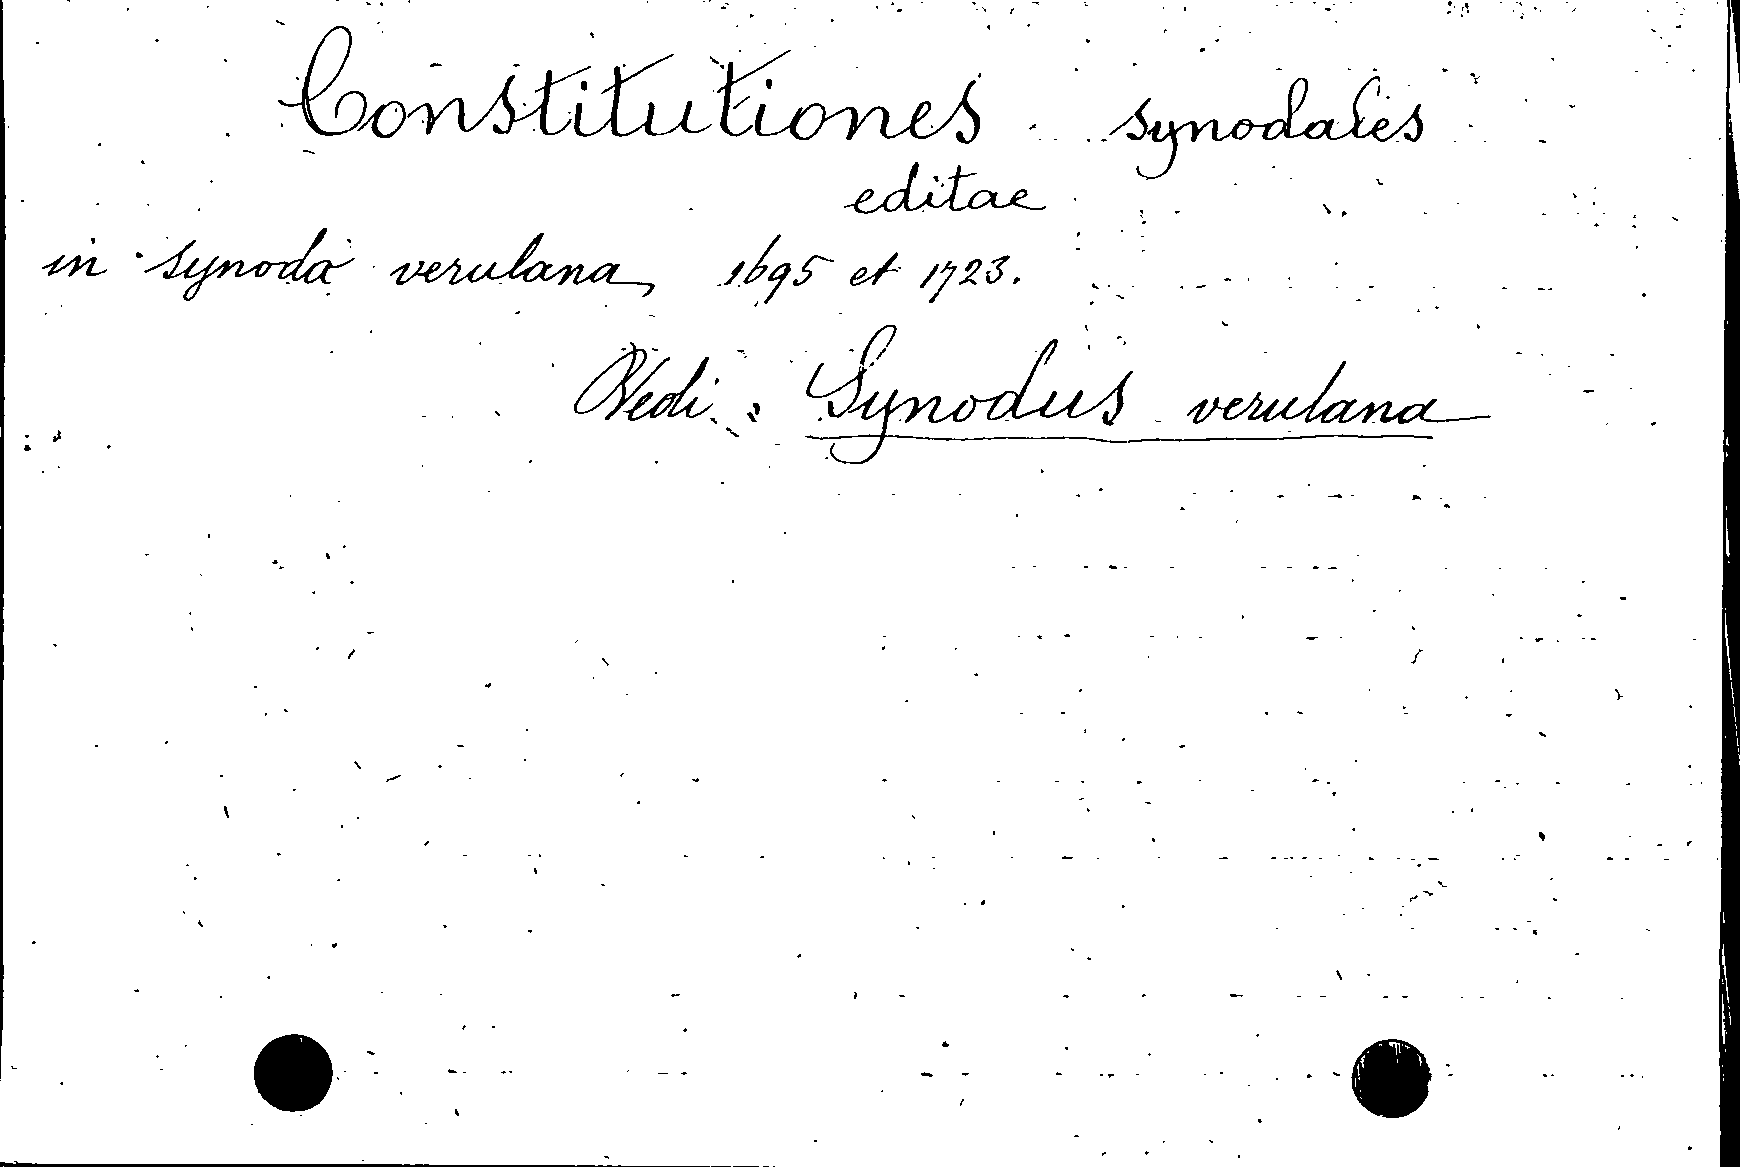 Constitutiones synodales
editae
in synoda verulana, 1695 et 1723.
Vedi: Synodus verulana